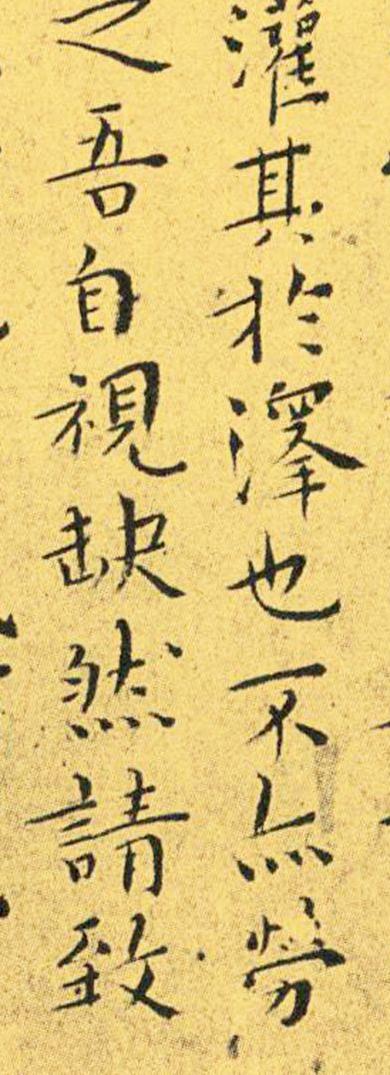 灌其於澤也不亦勞
之吾自視缺然請致